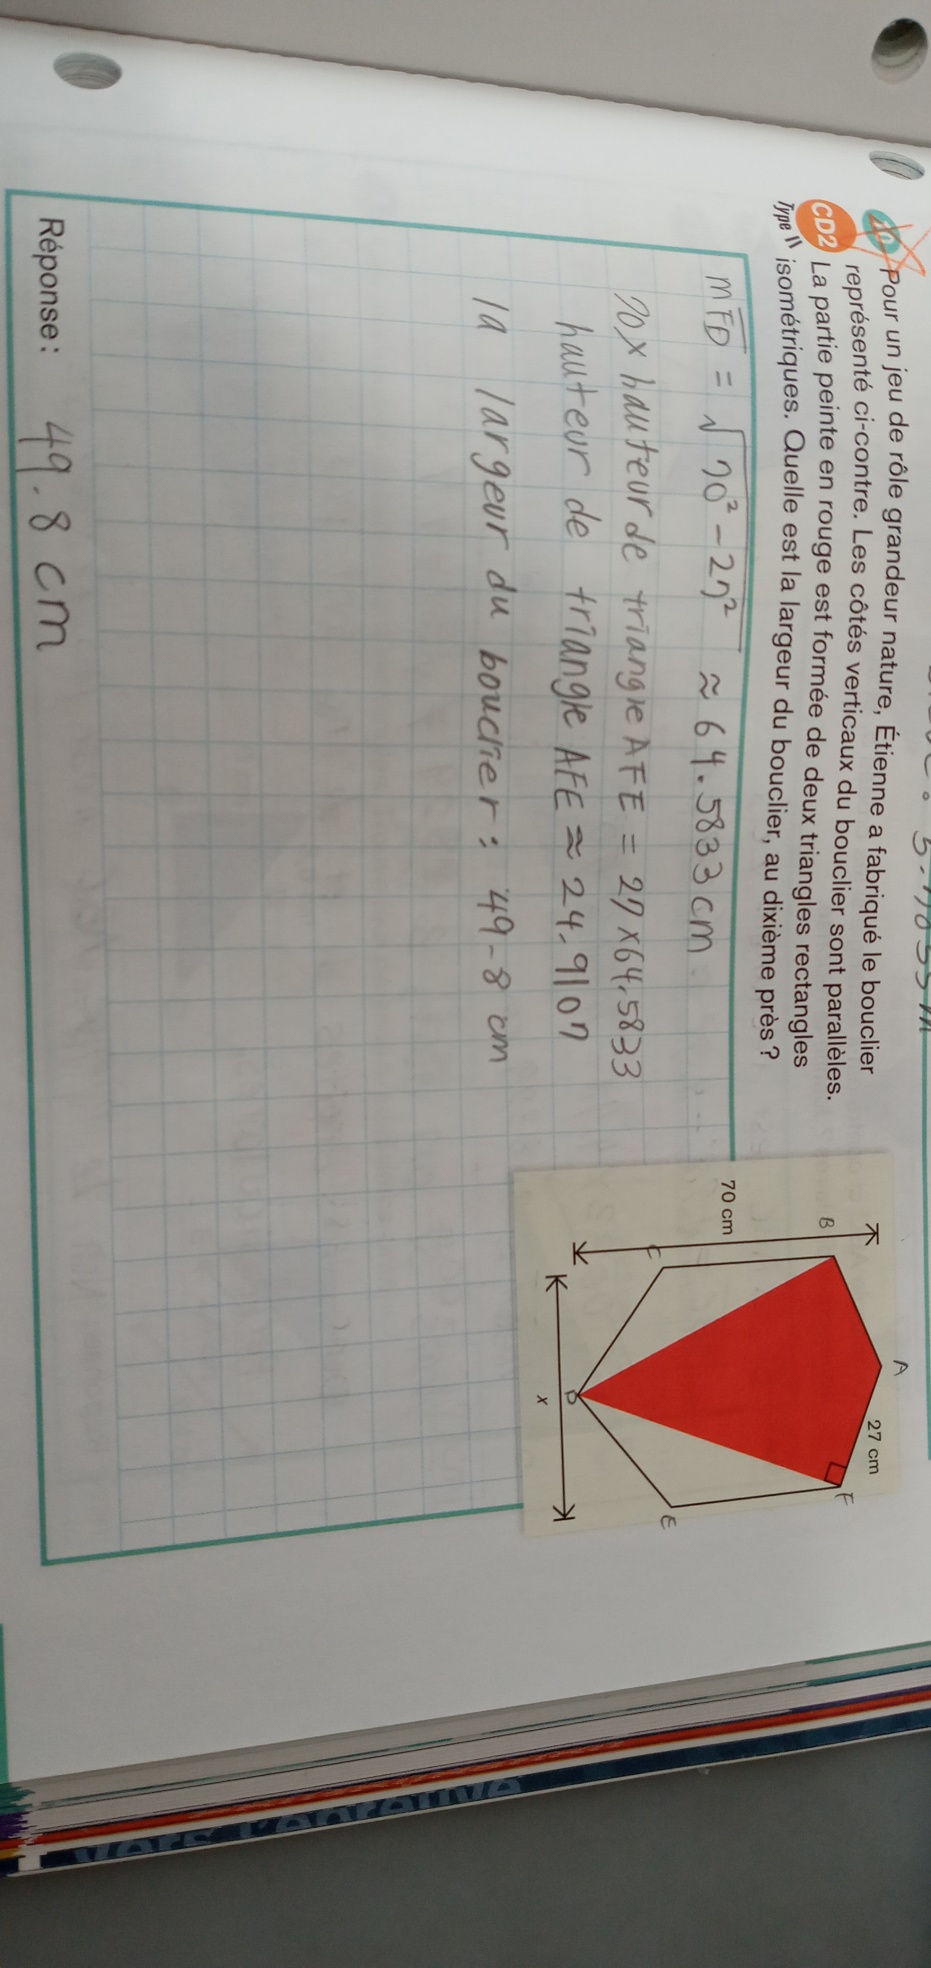 20 Pour un jeu de rôle grandeur nature, Étienne a fabriqué le bouclier
représenté ci-contre. Les côtés verticaux du bouclier sont parallèles.
CD2 La partie peinte en rouge est formée de deux triangles rectangles
Type II isométriques. Quelle est la largeur du bouclier, au dixième près ?
A
27 cm
B
F
70 cm
C
E
D
x
mFD = √70² - 27² ≈ 64.5833 cm
70 x hauteur de triangle AFE = 27 x 64.5833
hauteur de triangle AFE ≈ 24.9107
la largeur du bouclier : 49-8 cm
Réponse : 49.8 cm
vers l'épreuve